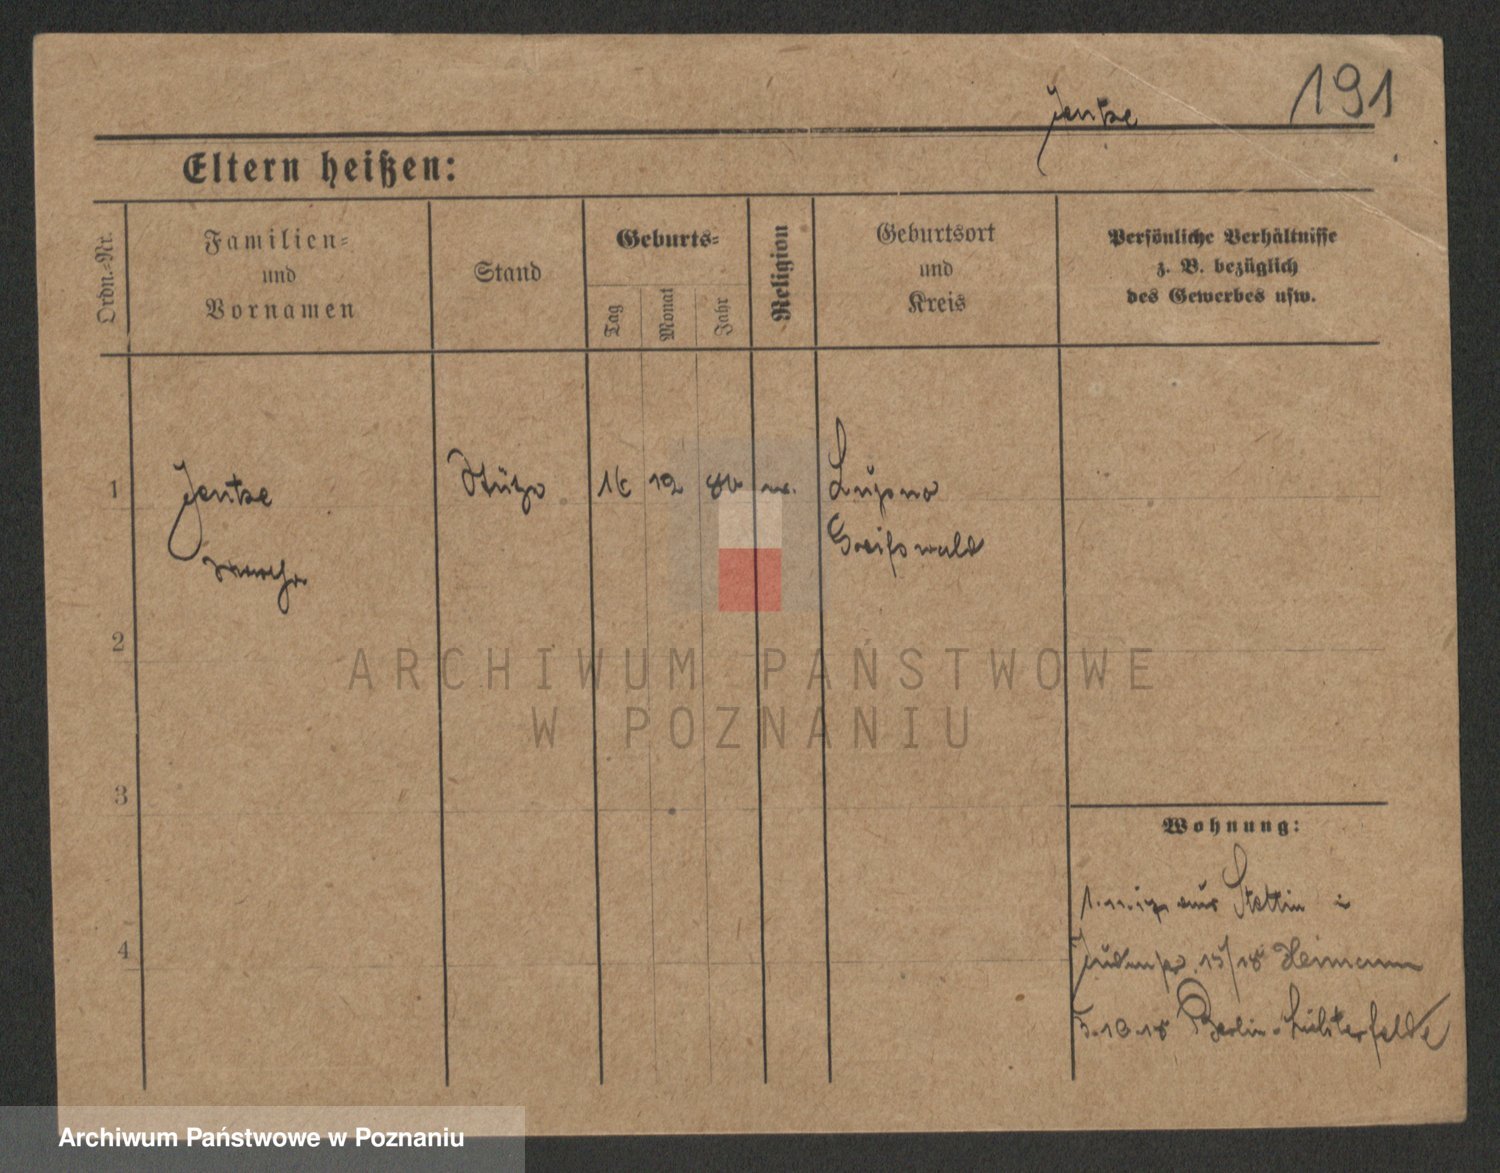 191
Jentze
Eltern heißen:
Ordn.-Nr.
Familien-
und
Vornamen
Stand
Geburts-
Tag
Monat
Jahr
Religion
Geburtsort
und
Kreis
Persönliche Verhältnisse
z. B. bezüglich
des Gewerbes usw.
1 Jentze 16 12
Greifswald
2
3
4
ARCHIWUM PAŃSTWOWE
W POZNANIU
Wohnung:
aus Stettin in
15/18 Hermann
Berlin-Lichterfelde
Archiwum Państwowe w Poznaniu